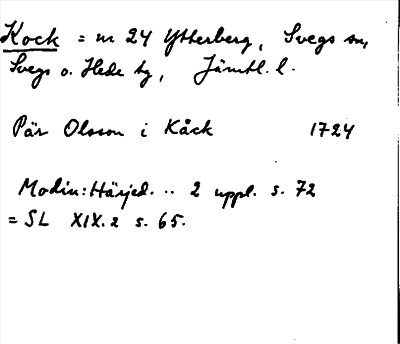 Kock = nr 24 Ytterberg, Svegs sn,
Svegs o. Hede tg, Jämtl. l.
Pär Olsson i Kåck 1724
Modin: Härjed. .. 2 uppl. s. 72
= SL XIX.2 s. 65.